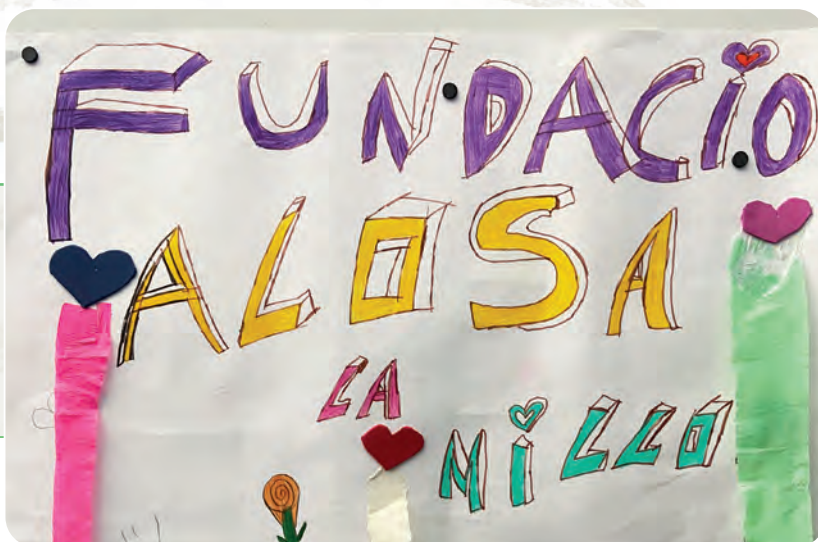 FUNDACiO
ALOSA
LA
MiLLO